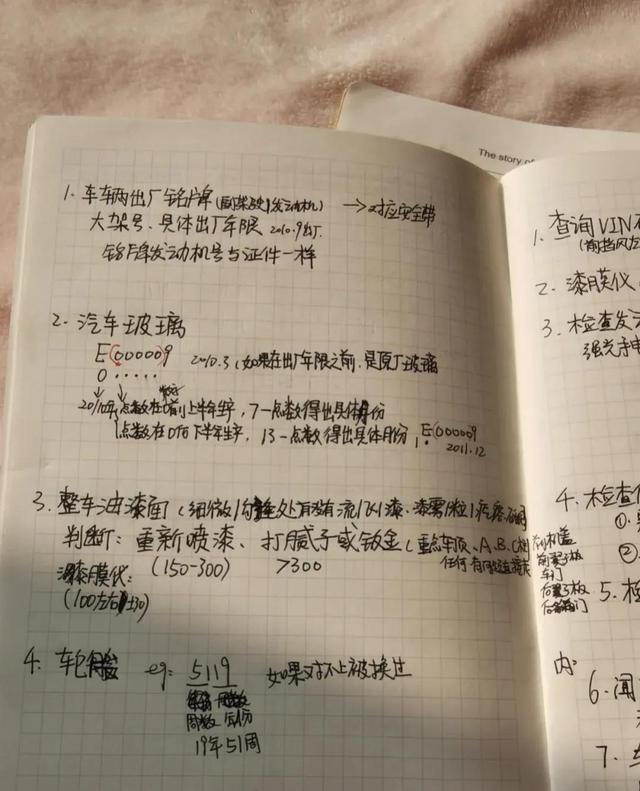 The story of
1. 车辆出厂铭牌(副驾驶/发动机) → 对应安全带
大架号、具体出厂年限 2010.9出厂
铭牌发动机号与证件一样
2. 汽车玻璃
E(00000)9 2010.3,如果在出厂年限之前,是原厂玻璃
0 .....
2010年 点数在0前上半年生产,7-点数得出具体月份
点数在0后下半年生产,13-点数得出具体月份,E(00000)9
2011.12
3. 整车油漆面(细微/
处有没有流/飞漆、漆雾/粒/疙瘩
判断:重新喷漆、打腻子或钣金(重点车顶、A、B、C柱
任何有
漆膜仪: (150-300) >300
(100左右±30)
4. 车轮胎 eg: 5119 如果对不上被换过
周数 年份
19年51周
1. 查询VIN
(前挡风
2. 漆膜仪
3. 检查发
强光手电
前机盖
前翼子板
车门
后翼子板
后备箱门
4. 检查
①
②
5. 检
内:
6. 闻
7. 车